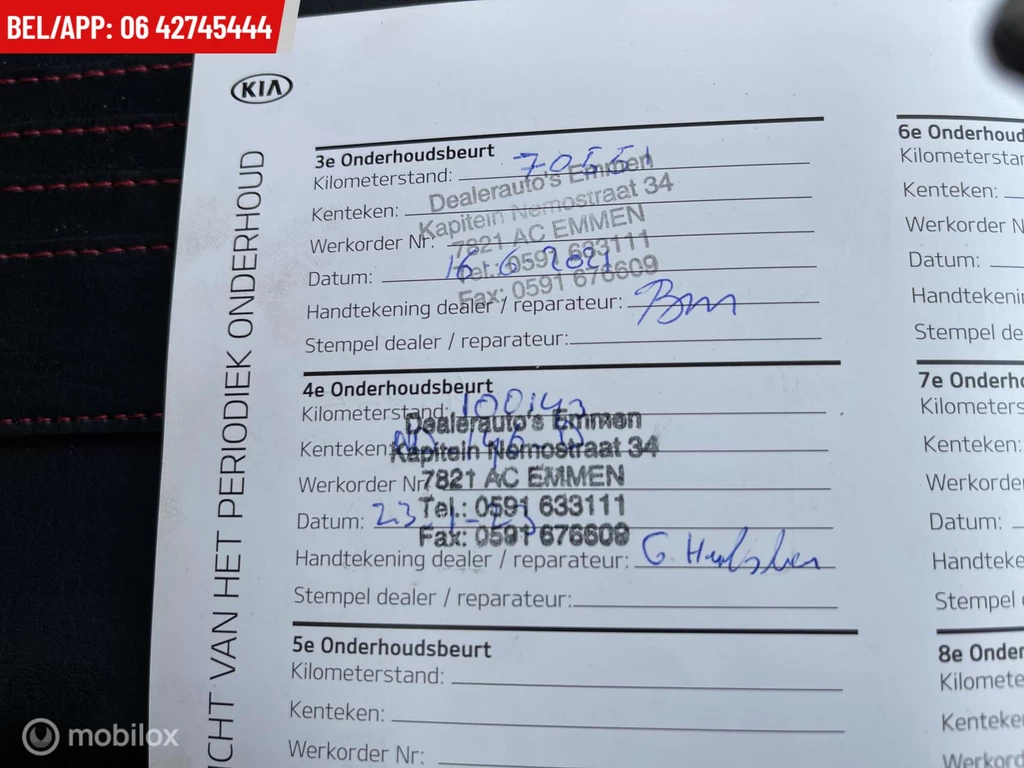 BEL/APP: 06 42745444
KIA
CHT VAN HET PERIODIEK ONDERHOUD
3e Onderhoudsbeurt
Kilometerstand: 70551
Dealerauto's Emmen
Kapitein Nemostraat 34
Kenteken:
7821 AC EMMEN
Werkorder Nr:
Tel.: 0591 633111
Datum: 16 6 2021
Fax: 0591 676609
Handtekening dealer / reparateur:
Stempel dealer / reparateur:
4e Onderhoudsbeurt
Kilometerstand: 100143
Dealerauto's Emmen
Kenteken:
Kapitein Nemostraat 34
Werkorder Nr
7821 AC EMMEN
Tel.: 0591 633111
Datum: 23
Fax: 0591 676609
Handtekening dealer / reparateur: G.
Stempel dealer / reparateur:
5e Onderhoudsbeurt
Kilometerstand:
Kenteken:
Werkorder Nr:
6e Onderhoud
Kilometerstan
Kenteken:
Werkorder N
Datum:
Handtekeni
Stempel de
7e Onderho
Kilometers
Kenteken:
Werkorde
Datum:
Handteke
Stempel
8e Onder
Kilomete
Kenteke
Werkord
mobilox